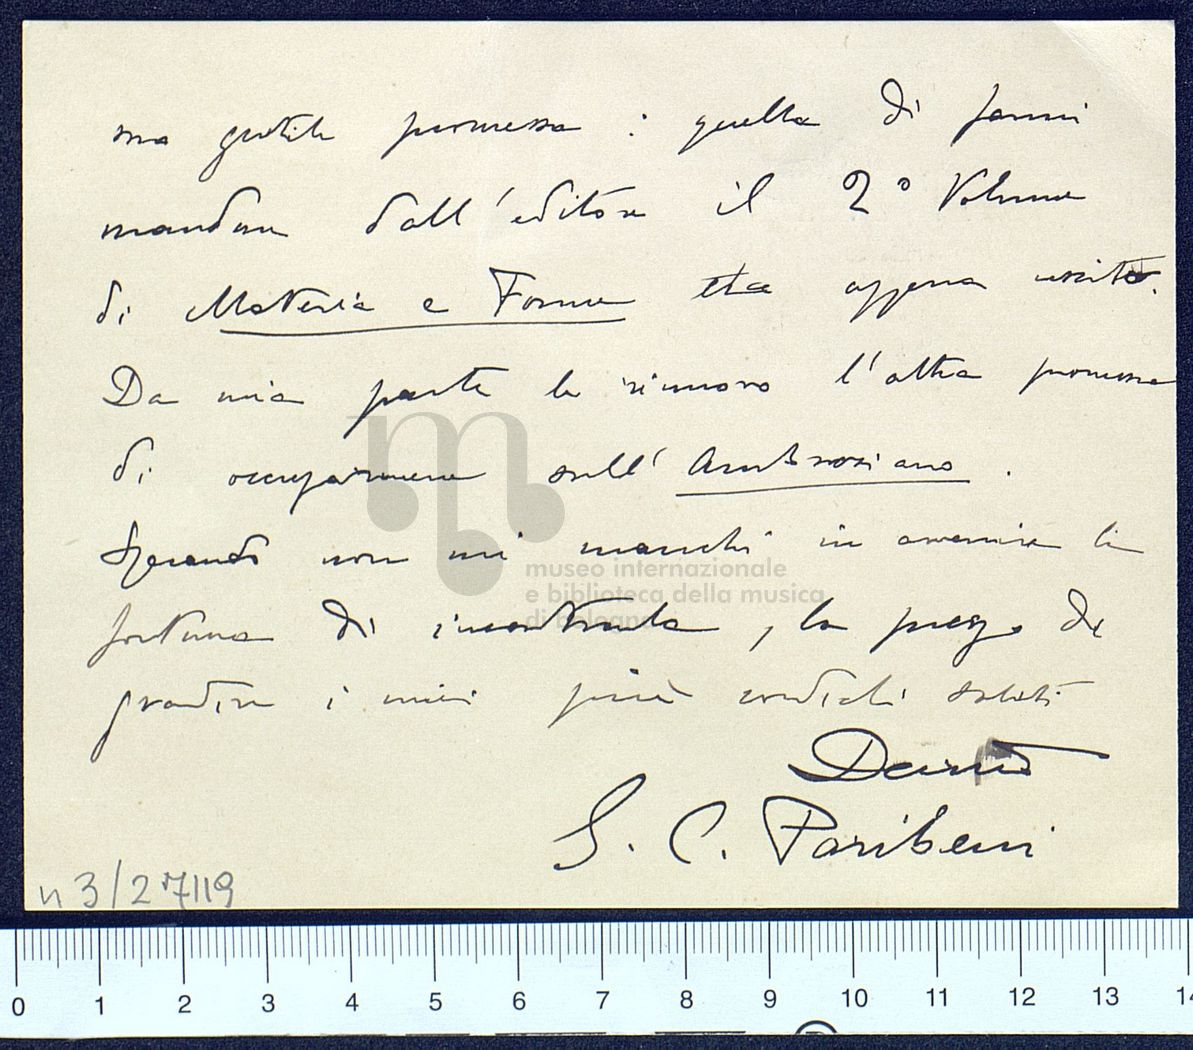 sua gentile promessa: quella di farmi
mandare dall'editore il 2º Volume
di Materia e Forme ora appena uscito.
Da mia parte le rinnovo l'altra promessa
di occuparmene sull'Ambrosiano.
Sperando non mi manchi in avvenire la
fortuna di incontrarla, la prego di
gradire i miei più cordiali saluti
Devmo
G. C. Paribeni
n 3/27119
museo internazionale
e biblioteca della musica
di bologna
0 1 2 3 4 5 6 7 8 9 10 11 12 13 14